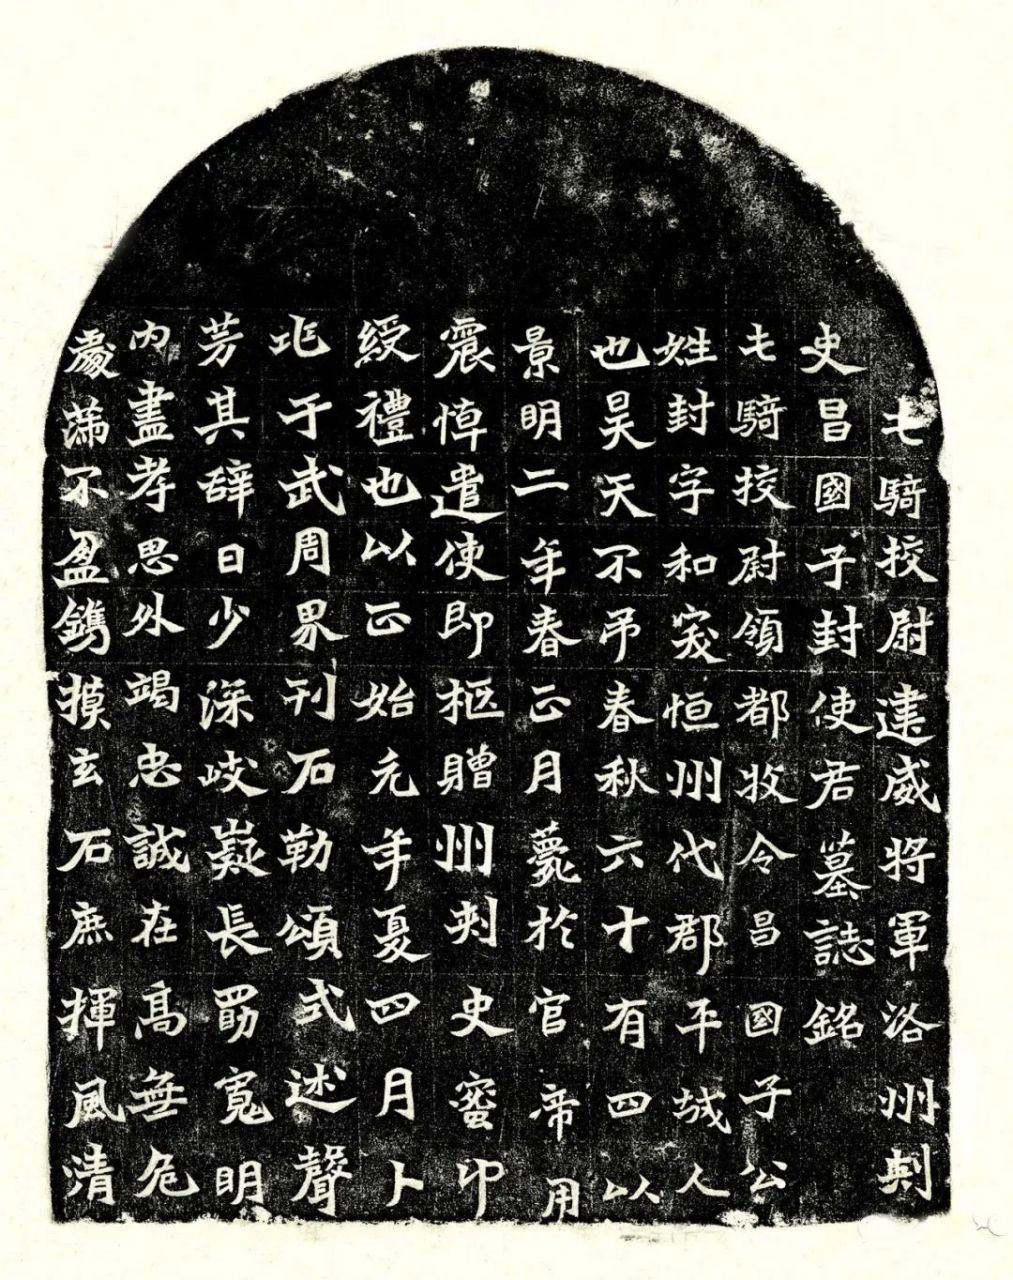 屯騎校尉建威將軍洛州刾
史昌國子封使君墓誌銘
屯騎校尉領都牧令昌國子公
姓封字和突恒州代郡平城人
也昊天不弔春秋六十有四以
景明二年春正月薨於官帝用
震悼遣使即柩贈州刾史蜜印
綬禮也以正始元年夏四月卜
兆于武周界刊石勒頌式述聲
芳其辞曰少深岐嶷長勗寬明
內盡孝思外竭忠誠在高無危
處滿不盈鐫摸玄石庶揮風清